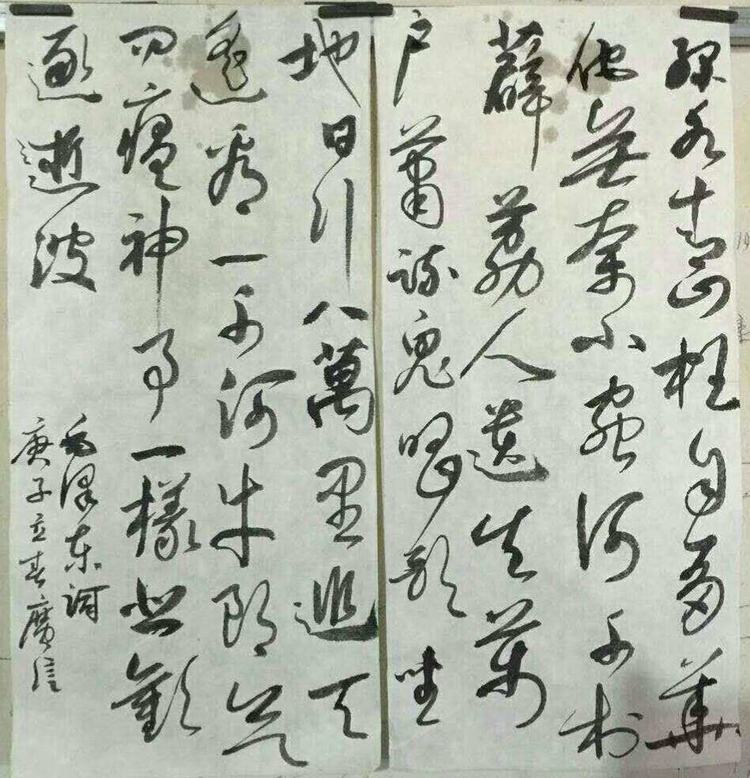 绿水青山枉自多華
佗無奈小蟲何千村
薜荔人遗矢萬
户蕭疏鬼唱歌坐
地日行八萬里巡天
遥看一千河牛郎欲
问瘟神事一樣悲歡
逐逝波
毛泽东词
庚子立春廣信